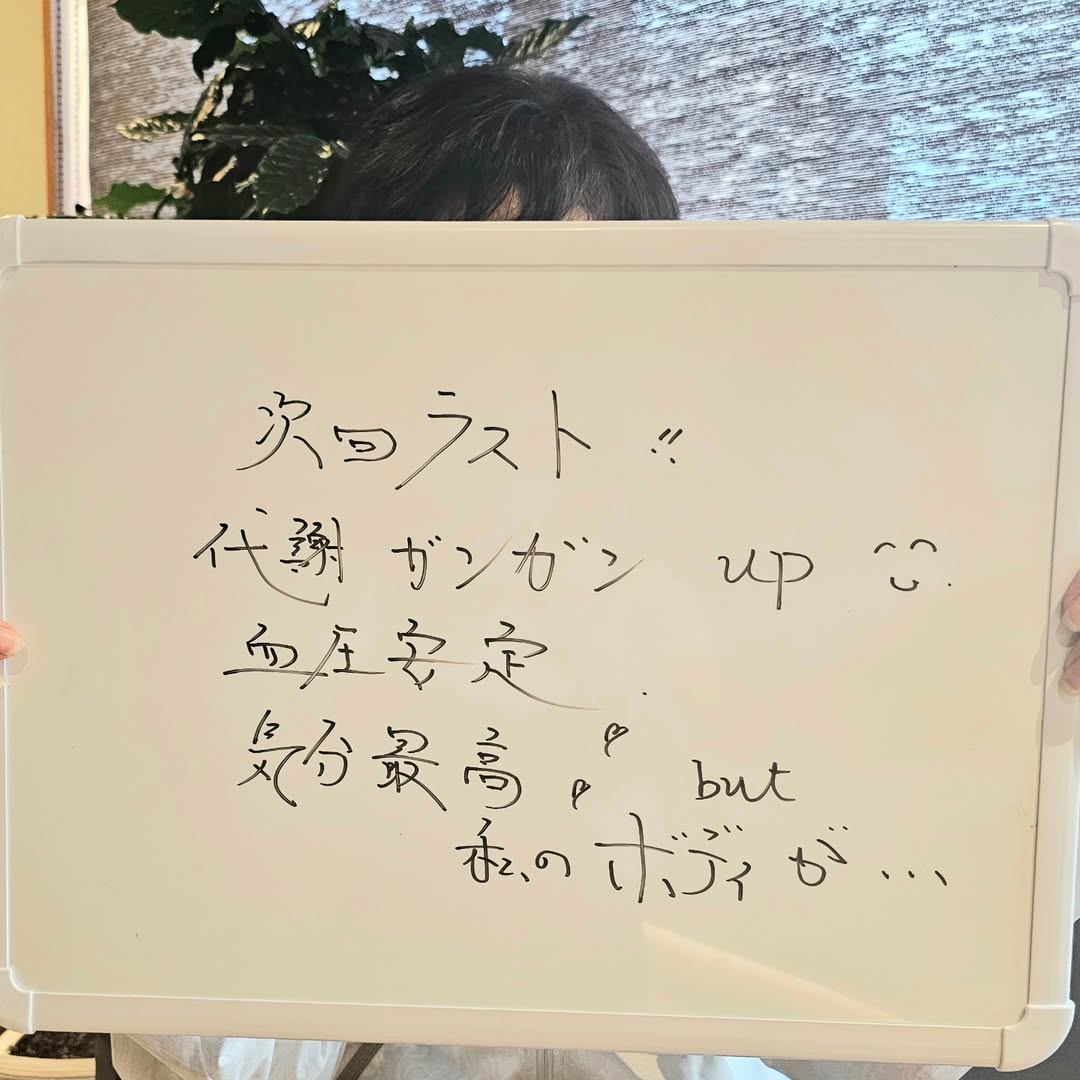 次回ラスト!!
代謝 ガンガン up
血圧安定
気分最高 but
私のボディが...